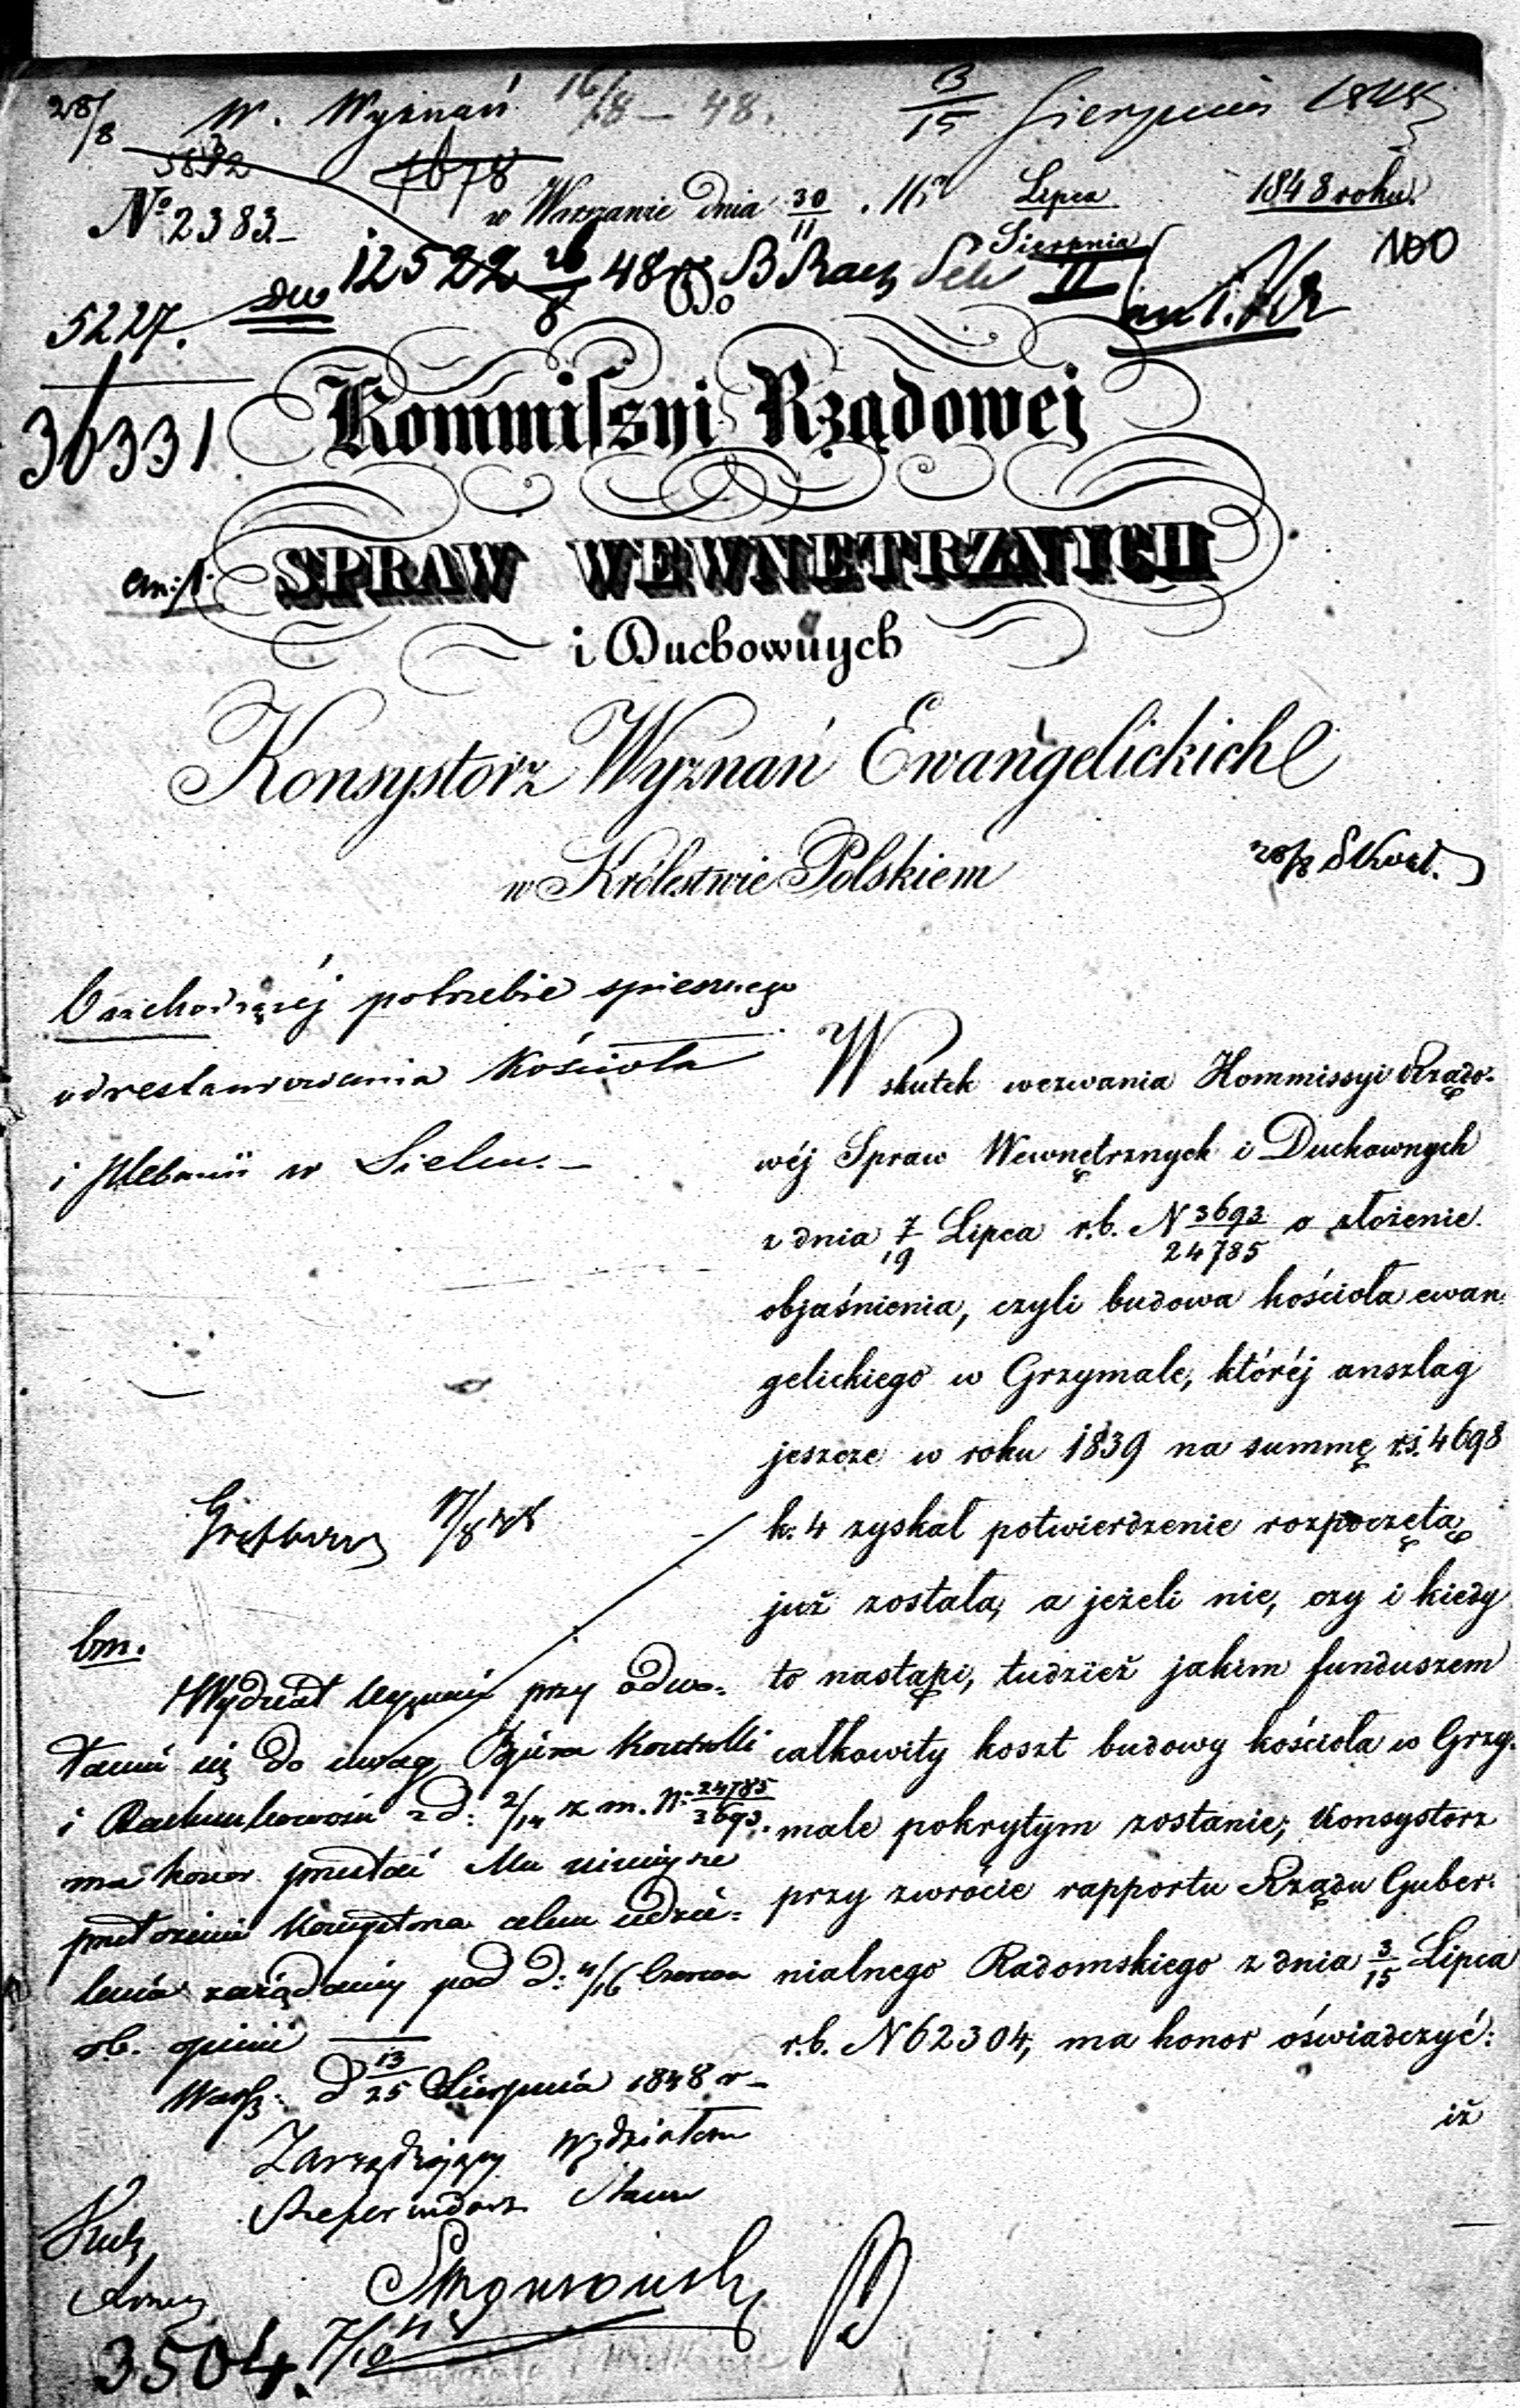 28/8 W. Wyznań 16/8 – 48. 3/15 Sierpnia 1848
5892 7678
№ 2383.– w Warszawie dnia 30/11 Lipca/Sierpnia 1848 roku.
12522 26/8 48 Do II 100
5227.
36331
Kommissyi Rządowej
SPRAW WEWNĘTRZNYCH
i Duchownych
Konsystorz Wyznań Ewangelickich
w Królestwie Polskiem
28/8
O zachodzącéj potrzebie spiesznego
odrestaurowania Kościoła
i plebanii w Sielcu.–
W skutek wezwania Kommissyi Rządo-
wéj Spraw Wewnętrznych i Duchownych
z dnia 7/19 Lipca r.b. N 3693/24785 o złożenie
objaśnienia, czyli budowa kościoła ewan-
gelickiego w Grzymale, któréj anszlag
jeszcze w roku 1839 na summę rs. 4698
k. 4 zyskał potwierdzenie rozpoczętą
już została, a jeżeli nie, czy i kiedy
to nastąpi, tudzież jakim funduszem
całkowity koszt budowy kościoła w Grzy-
male pokrytym zostanie; Konsystorz
przy zwrocie rapportu Rządu Guber-
nialnego Radomskiego z dnia 3/15 Lipca
r.b. N 62304, ma honor oświadczyć:
iż
17/8 48
bm.
Wydział Wyznań przy odwo-
łaniu się do uwag Bjura Kontrolli
i Rachunkowości z d: 2/14 z. m. N: 24785/3693.
ma honor przesłać Mu niniejsze
przełożenie Konsystorza celem udzie-
lenia zażądanéj pod d: 4/16 Czerwca
r.b. opinii
Warsz: d 13/25 Sierpnia 1848 r –
Zarządzający Wydziałem
Referendarz Stanu
3504. 7/10 48